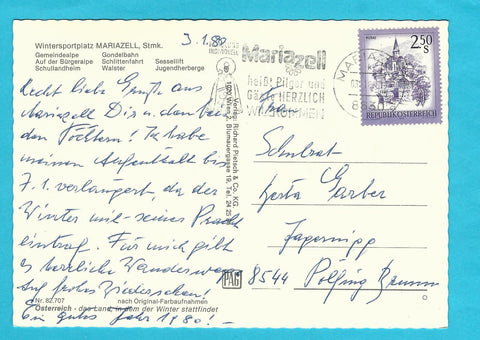 Wintersportplatz MARIAZELL, Stmk.
Gemeindealpe Gondelbahn Sessellift
Auf der Bürgeralpe Schlittenfahrt Jugendherberge
Schullandheim Walster
3.1.80
Recht liebe Grüße aus
Mariazell Dir u. den beiden
Töchtern! Ich habe
meinen Aufenthalt bis
7.1. verlängert, da der
Winter mit seiner Pracht
eintraf. Für mich gibt
es herrliche Wanderwege
Auf frohes Wiedersehen!
Ein gutes Jahr 1980!
Nr. 82.707 nach Original-Farbaufnahmen
Österreich - das Land, in dem der Winter stattfindet
Verlag: Richard Pietsch & Co. KG.
1100 Wien, Blumauergasse 19, Tel. 24 25
PAG
Mariazell
heißt Pilger und
Gäste HERZLICH
WILLKOMMEN
MARIAZELL
8630
2.50 S
MURAU
REPUBLIK ÖSTERREICH
Frau
Schulrat
Herta Garber
8544 Pölfing Brunn